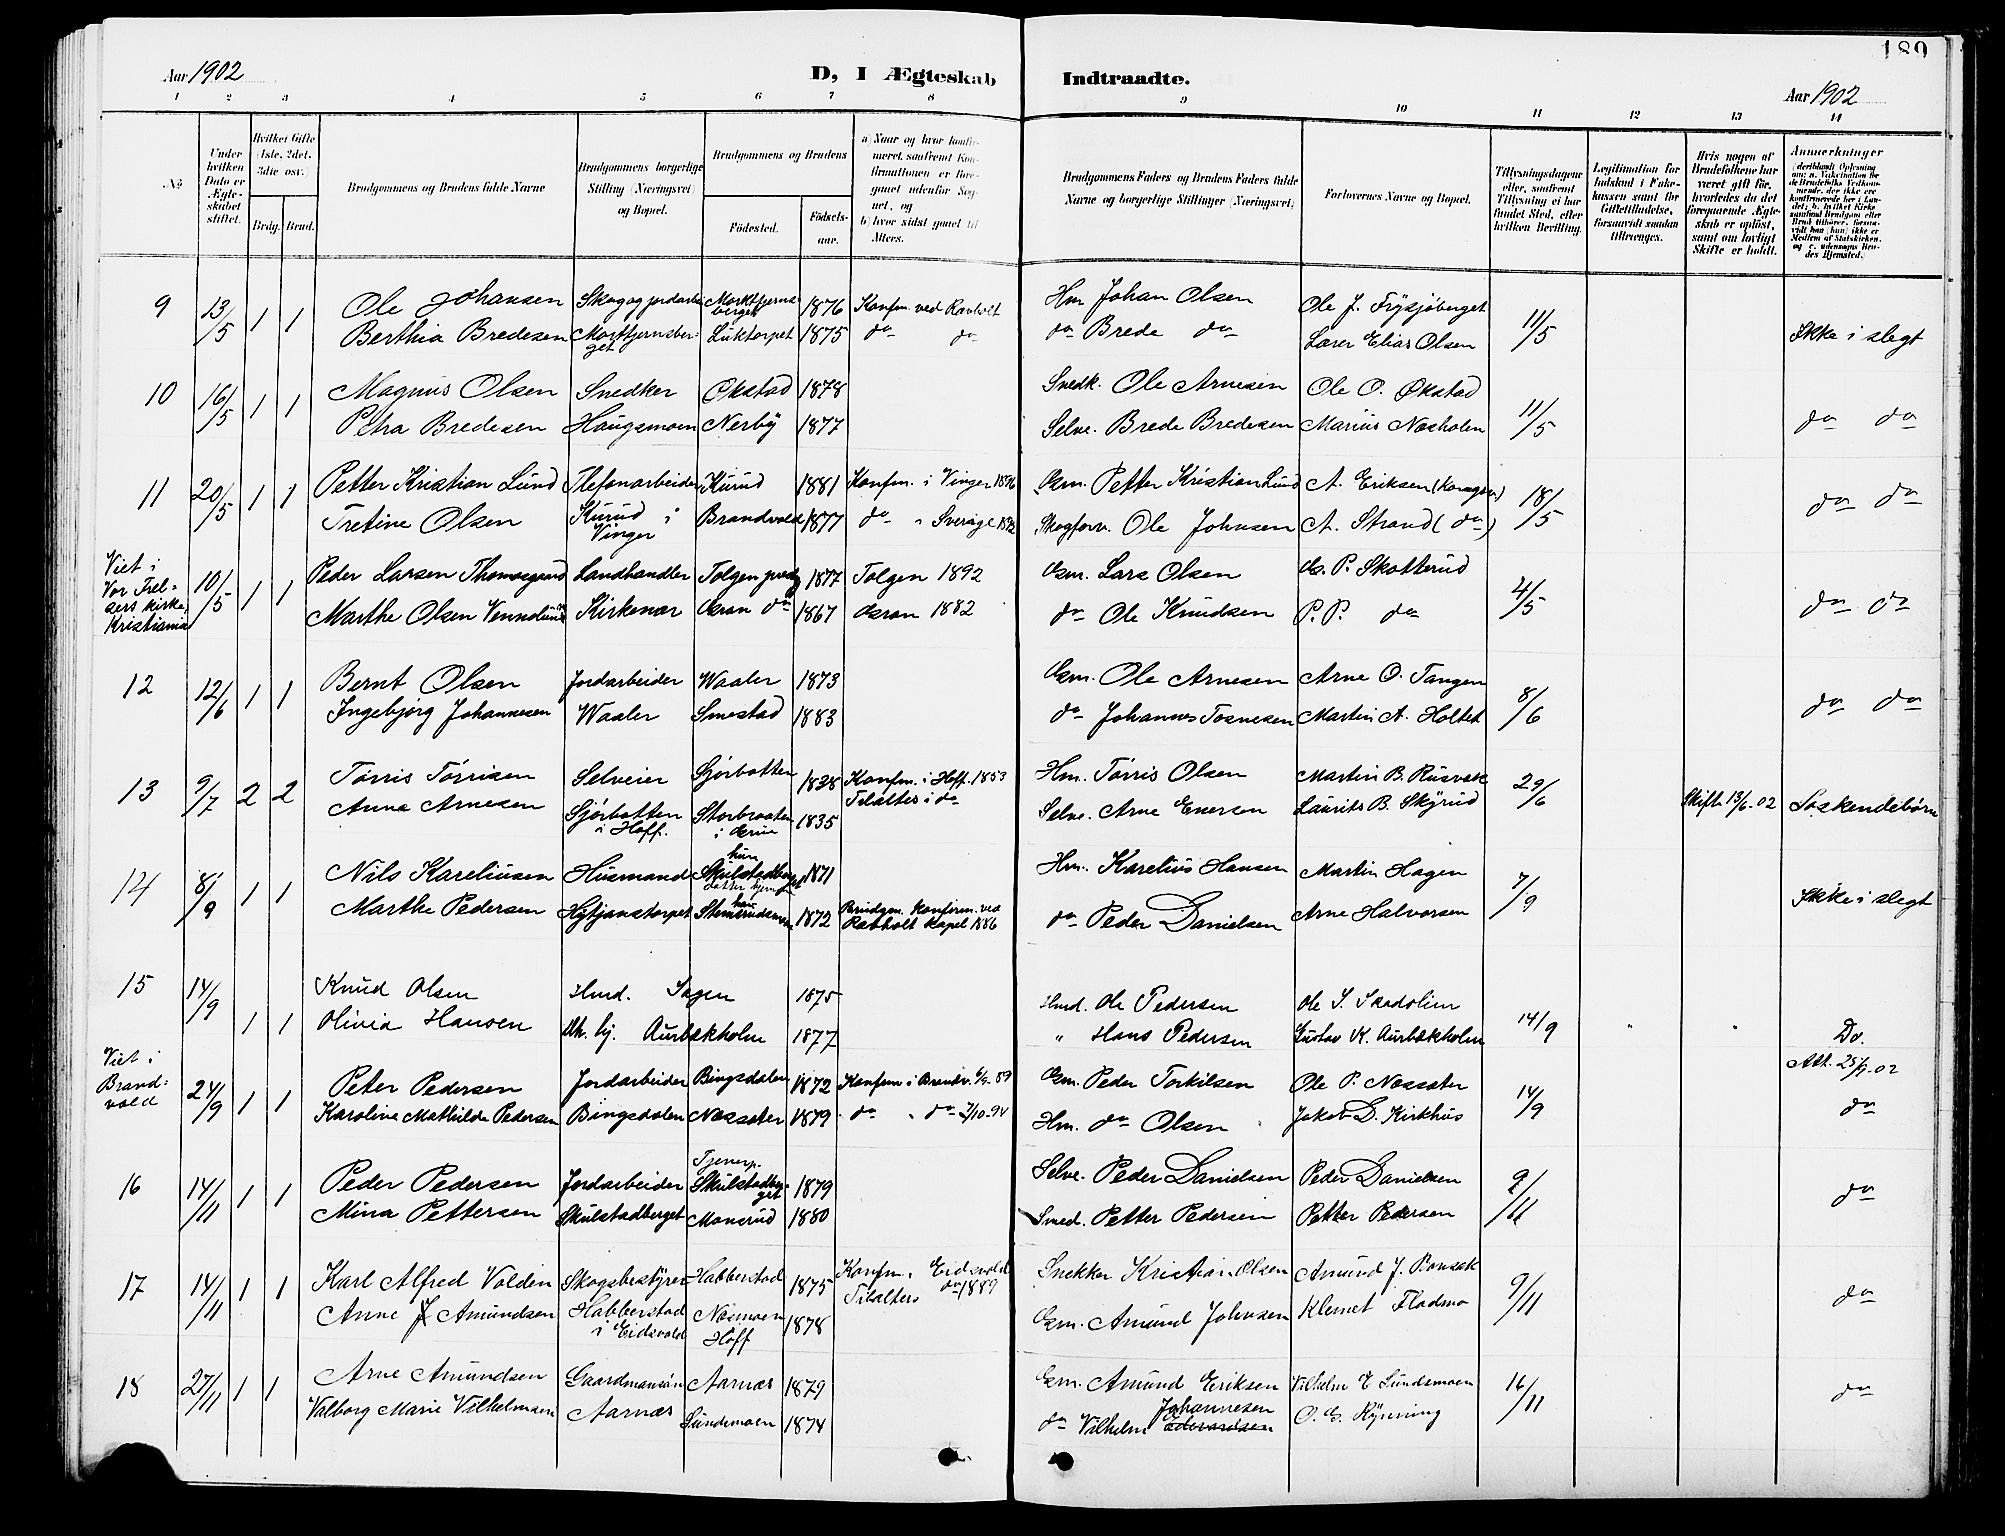 189
Aar 1902 D, I Ægteskab Indtraadte. Aar 1902
1 2 3 4 5 6 7 8 9 10 11 12 13 14
No
Under hvilken Dato er Ægteskabet stiftet.
Hvilket Gifte (1ste, 2det, 3die osv.)
Brdg. Brud.
Brudgommens og Brudens fulde Navne
Brudgommens borgerlige Stilling (Næringsvei) og Bopæl.
Brudgommens og Brudens
Fødested. Fødselsaar.
a) Naar og hvor konfirmeret, saafremt Konfirmationen er foregaaet udenfor Sognet, og
b) hvor sidst gaaet til Alters.
Brudgommens Faders og Brudens Faders fulde Navne og borgerlige Stillinger (Næringsvei)
Forlovernes Navne og Bopæl.
Tillysningsdagene eller, saafremt Tillysning ei har fundet Sted, efter hvilken Bevilling.
Legitimation for Indskud i Enkekassen samt for Giftetilladelse, forsaavidt saadan tiltrænges.
Hvis nogen af Brudefolkene har været gift før, hvorledes da det foregaaende Ægteskab er opløst, samt om lovligt Skifte er holdt.
Anmerkninger
9 13/5 1 1 Ole Johansen Skog og jordarbei Morktjernsberget 1876 Konfm. ved Ravholt Hm Johan Olsen Ole J. Frysjøberget 11/5
Berthia Bredesen Morktjernsberget Luktorpet 1875 do do do Brede do Lærer Elias Olsen Ikke i slegt
10 16/5 1 1 Magnus Olsen Snedker Økstad 1878 Snedk. Ole Arnesen Ole O. Økstad 11/5
Petra Bredesen Haugsmoen Nerby 1877 Selve. Brede Bredesen Marius Næsholen do do
11 20/5 1 1 Petter Kristian Lund Tlefonarbeider Kurud 1881 Konfm. i Vinger 1896 Gm. Petter Kristian Lund A. Eriksen 18/5
Tretine Olsen Kurud i Vinger Brandvold 1877 do " Sverige 1892 Skogforv. Ole Johnsen A. Strand (do) do do
Viet i Vor Frelsers kirke, Kristiania 10/5 1 1 Peder Larsen Thomasgaard Landhandler Tolgen 1877 Tolgen 1892 Gm. Lars Olsen P. Skotterud 4/5
Marthe Olsen Kirkenær Gran do 1867 Gran 1882 do Ole Knudsen P. P. do do do
12 12/6 1 1 Bernt Olsen Jordarbeider Waaler 1873 Gm. Ole Arnesen Arne O. Tangen 8/6
Ingebjørg Johannesen Waaler Smestad 1883 do Johannes Tosnesen Martin A. Holtet do do
13 9/7 2 2 Tørris Tørrisen Selveier Sjørbotten 1838 Konfm. i Hoff. 1853 Hm. Tørris Olsen Martin B. Rusvek 29/6
Anna Arnesen Sjørbotten i Hoff. Storbraaten i Grue 1835 Tilalters i do Selve. Arne Enersen Laurits B. Skyrud Skifte 13/6.02 Søskendebørn
14 8/9 1 1 Nils Kareliusen Husmand hun Skulstadberget 1871 Hm. Karelius Hansen Martin Hagen 7/9
Marthe Pedersen Hytjanstorpet han 1872 Brudgm. konfirm. ved Ravholt kapel 1886 do Peder Danielsen Arne Halvorsen Ikke i slegt
15 14/9 1 1 Knud Olsen Hmd. Sagen 1875 Hmd. Ole Pedersen Ole S. Skadolim 14/9
Olivia Hansen Aurbækholm 1877 " Hans Pedersen Gustav K. Aurbækholm " " Do.
Viet i Brandvold 24/9 1 1 Peter Pedersen Jordarbeider Bingsdalen 1872 Konfm i Brandv. 6/9.89 Gm. Peder Torkilsen Ole P. Næssæter 14/9 Att. 25/9.02
Karoline Mathilde Pedersen Bingsdalen Næssæter 1879 do " do 7/10.94 Hm. do Olsen Jakob D. Kirkhus do
16 14/11 1 1 Peder Pedersen Jordarbeider Skulstadberget 1879 Selve. Peder Danielsen Peder Danielsen 9/11
Mina Pettersen Skulstadberget Monsrud 1880 Smed. Petter Pedersen Petter Pedersen do
17 14/11 1 1 Karl Alfred Volden Skogsbestyrer Habberstad 1875 Konfm. i Eidsvold 1889 Snekker Kristian Olsen Amund J. Ronsæk 9/11
Anne J Amundsen Habberstad i Eidsvold Næsmoen Hoff 1878 Tilalters do Gm. Amund Johnsen Klemet Fladmo do
18 27/11 1 1 Arne Amundsen Gaardmansøn Aarnæs 1879 Gm. Amund Eriksen Vilhelm E Sundsmoen 16/11
Valborg Marie Vilhelmsen Aarnæs Sundsmoen 1874 do Vilhelm Johannesen Edvardsen O. G. Kynning do